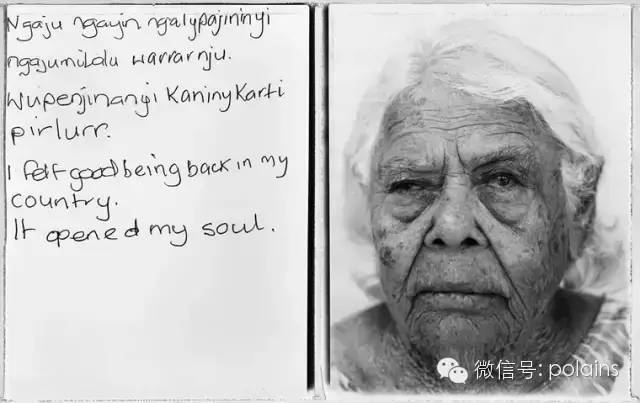 Ngaju ngayin ngalypajininyi
ngajumilalu warrarnju.
Wupenjinanyi Kaninykarti
pirlurr.
I felt good being back in my
country.
It opened my soul.
微信号: polains